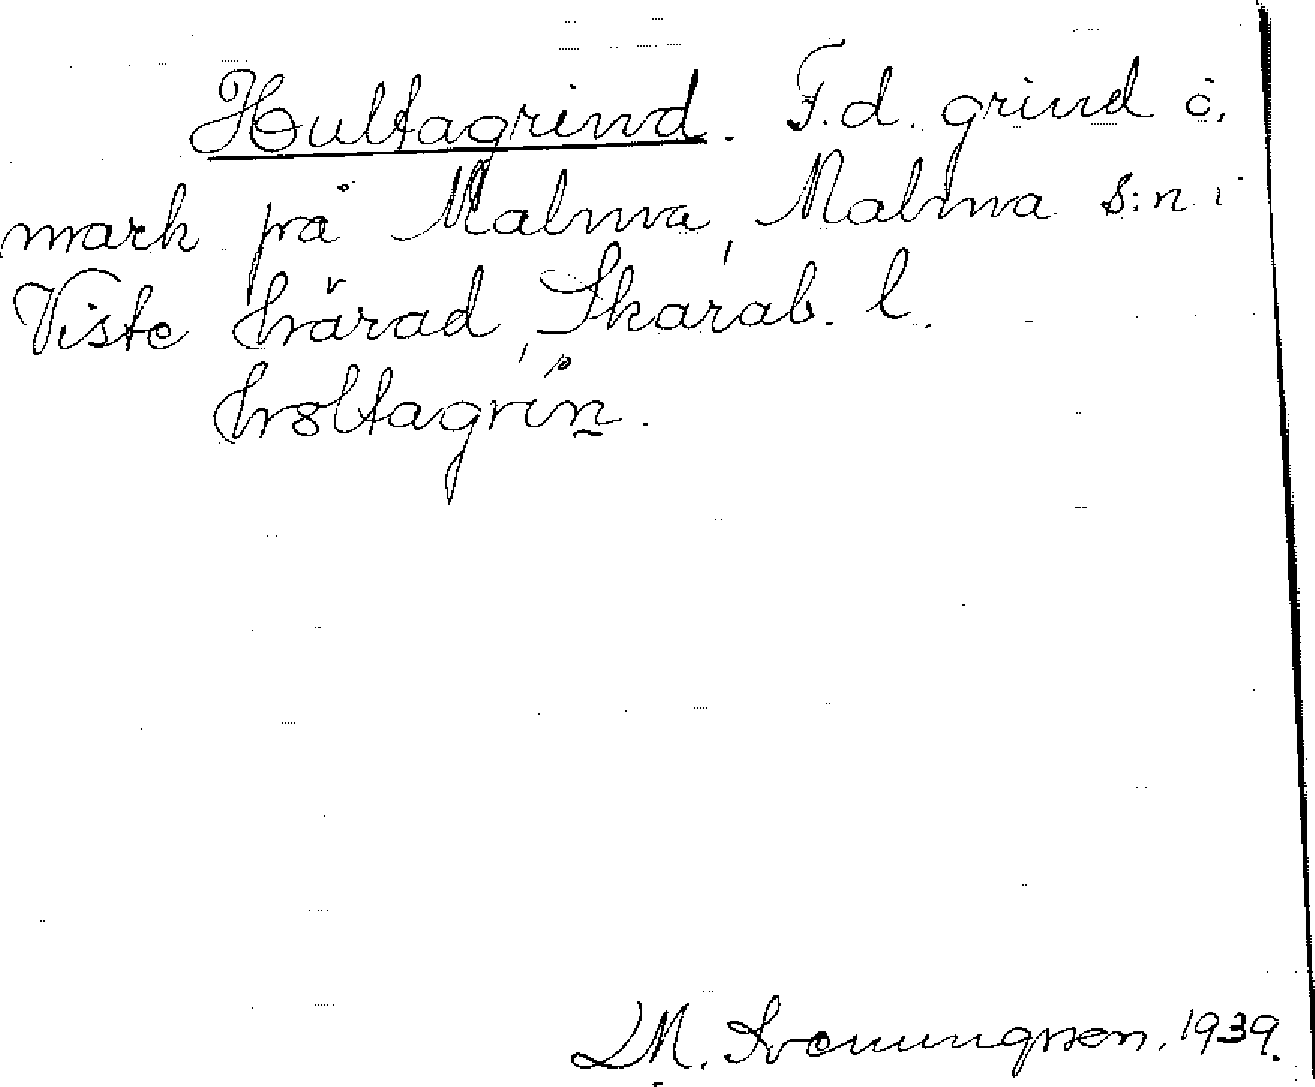 Hultagrind. F.d. grind ö.
mark på Malma, Malma s:n i
Viste härad, Skarab. l.
hɷltagrin.
LM. Svenungsson. 1939.